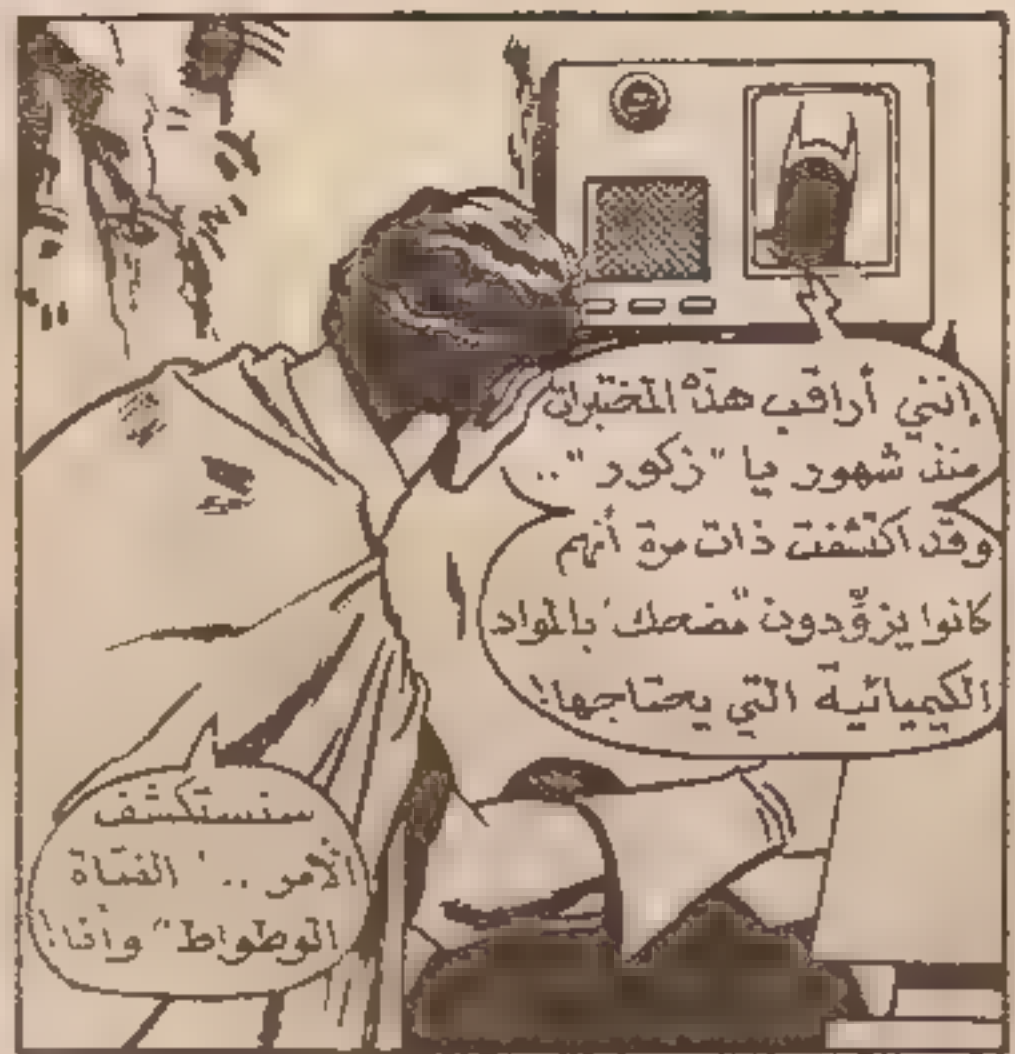 إنني أراقب هذه المختبرات
منذ شهور يا "زكور"..
وقد اكتشفت ذات مرة أنهم
كانوا يزوّدون "مضحك" بالمواد
الكيميائية التي يحتاجها!
سنستكشف
الأمر.. "الفتاة
الوطواط" وأنا!